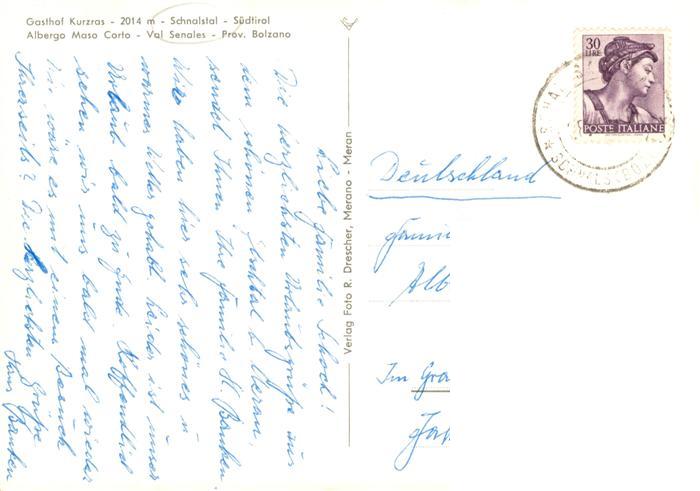 Gasthof Kurzras - 2014 m - Schnalstal - Südtirol
Albergo Maso Corto - Val Senales - Prov. Bolzano
Liebe Familie
Die herzlichsten Urlaubsgrüße aus
dem schönen b. Meran,
sendet Ihnen Ihre Familie H. Banken
Wir haben hier sehr schönes u.
warmes Wetter gehabt leider ist unser
Urlaub bald zu Ende. Hoffendlich
sehen wir uns bald mal wieder
Wie wäre es mit einem Besuch
Ihrerseits? Die herzlichsten Grüße
Hans Banken
Verlag Foto R. Drescher, Merano - Meran
30
LIRE
POSTE ITALIANE
Deutschland
Fami
Alb
Im Gra